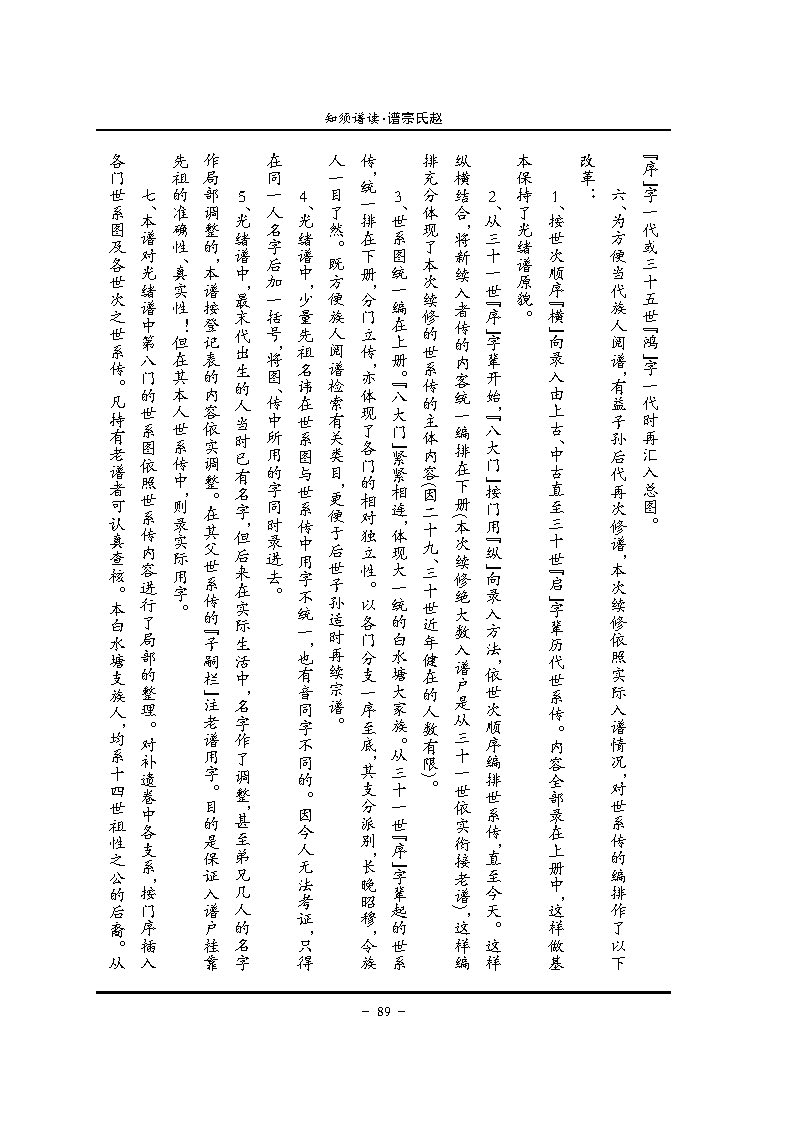 知须谱读·谱宗氏赵
『序』字一代或三十五世『鸿』字一代时再汇入总图。
六、为方便当代族人阅谱，有益子孙后代再次修谱，本次续修依照实际入谱情况，对世系传的编排作了以下
改革：
1、按世次顺序『横』向录入由上古、中古直至三十世『启』字辈历代世系传。内容全部录在上册中，这样做基
本保持了光绪谱原貌。
2、从三十一世『序』字辈开始，『八大门』按门用『纵』向录入方法，依世次顺序编排世系传，直至今天。这样
纵横结合，将新续入者传的内容统一编排在下册(本次续修绝大数入谱户是从三十一世依实衔接老谱)，这样编
排充分体现了本次续修的世系传的主体内容(因二十九、三十世近年健在的人数有限)。
3、世系图统一编在上册。『八大门』紧紧相连，体现大一统的白水塘大家族。从三十一世『序』字辈起的世系
传，统一排在下册，分门立传，亦体现了各门的相对独立性。以各门分支一序至底，其支分派别，长晚昭穆，令族
人一目了然。既方便族人阅谱检索有关类目，更便于后世子孙适时再续宗谱。
4、光绪谱中，少量先祖名讳在世系图与世系传中用字不统一，也有音同字不同的。因今人无法考证，只得
在同一人名字后加一括号，将图、传中所用的字同时录进去。
5、光绪谱中，最末代出生的人当时已有名字，但后来在实际生活中，名字作了调整，甚至弟兄几人的名字
作局部调整的，本谱按登记表的内容依实调整。在其父世系传的『子嗣栏』注老谱用字。目的是保证入谱户挂靠
先祖的准确性、真实性！但在其本人世系传中，则录实际用字。
七、本谱对光绪谱中第八门的世系图依照世系传内容进行了局部的整理。对补遗卷中各支系，按门序插入
各门世系图及各世次之世系传。凡持有老谱者可认真查核。本白水塘支族人，均系十四世祖性之公的后裔。从
- 89 -